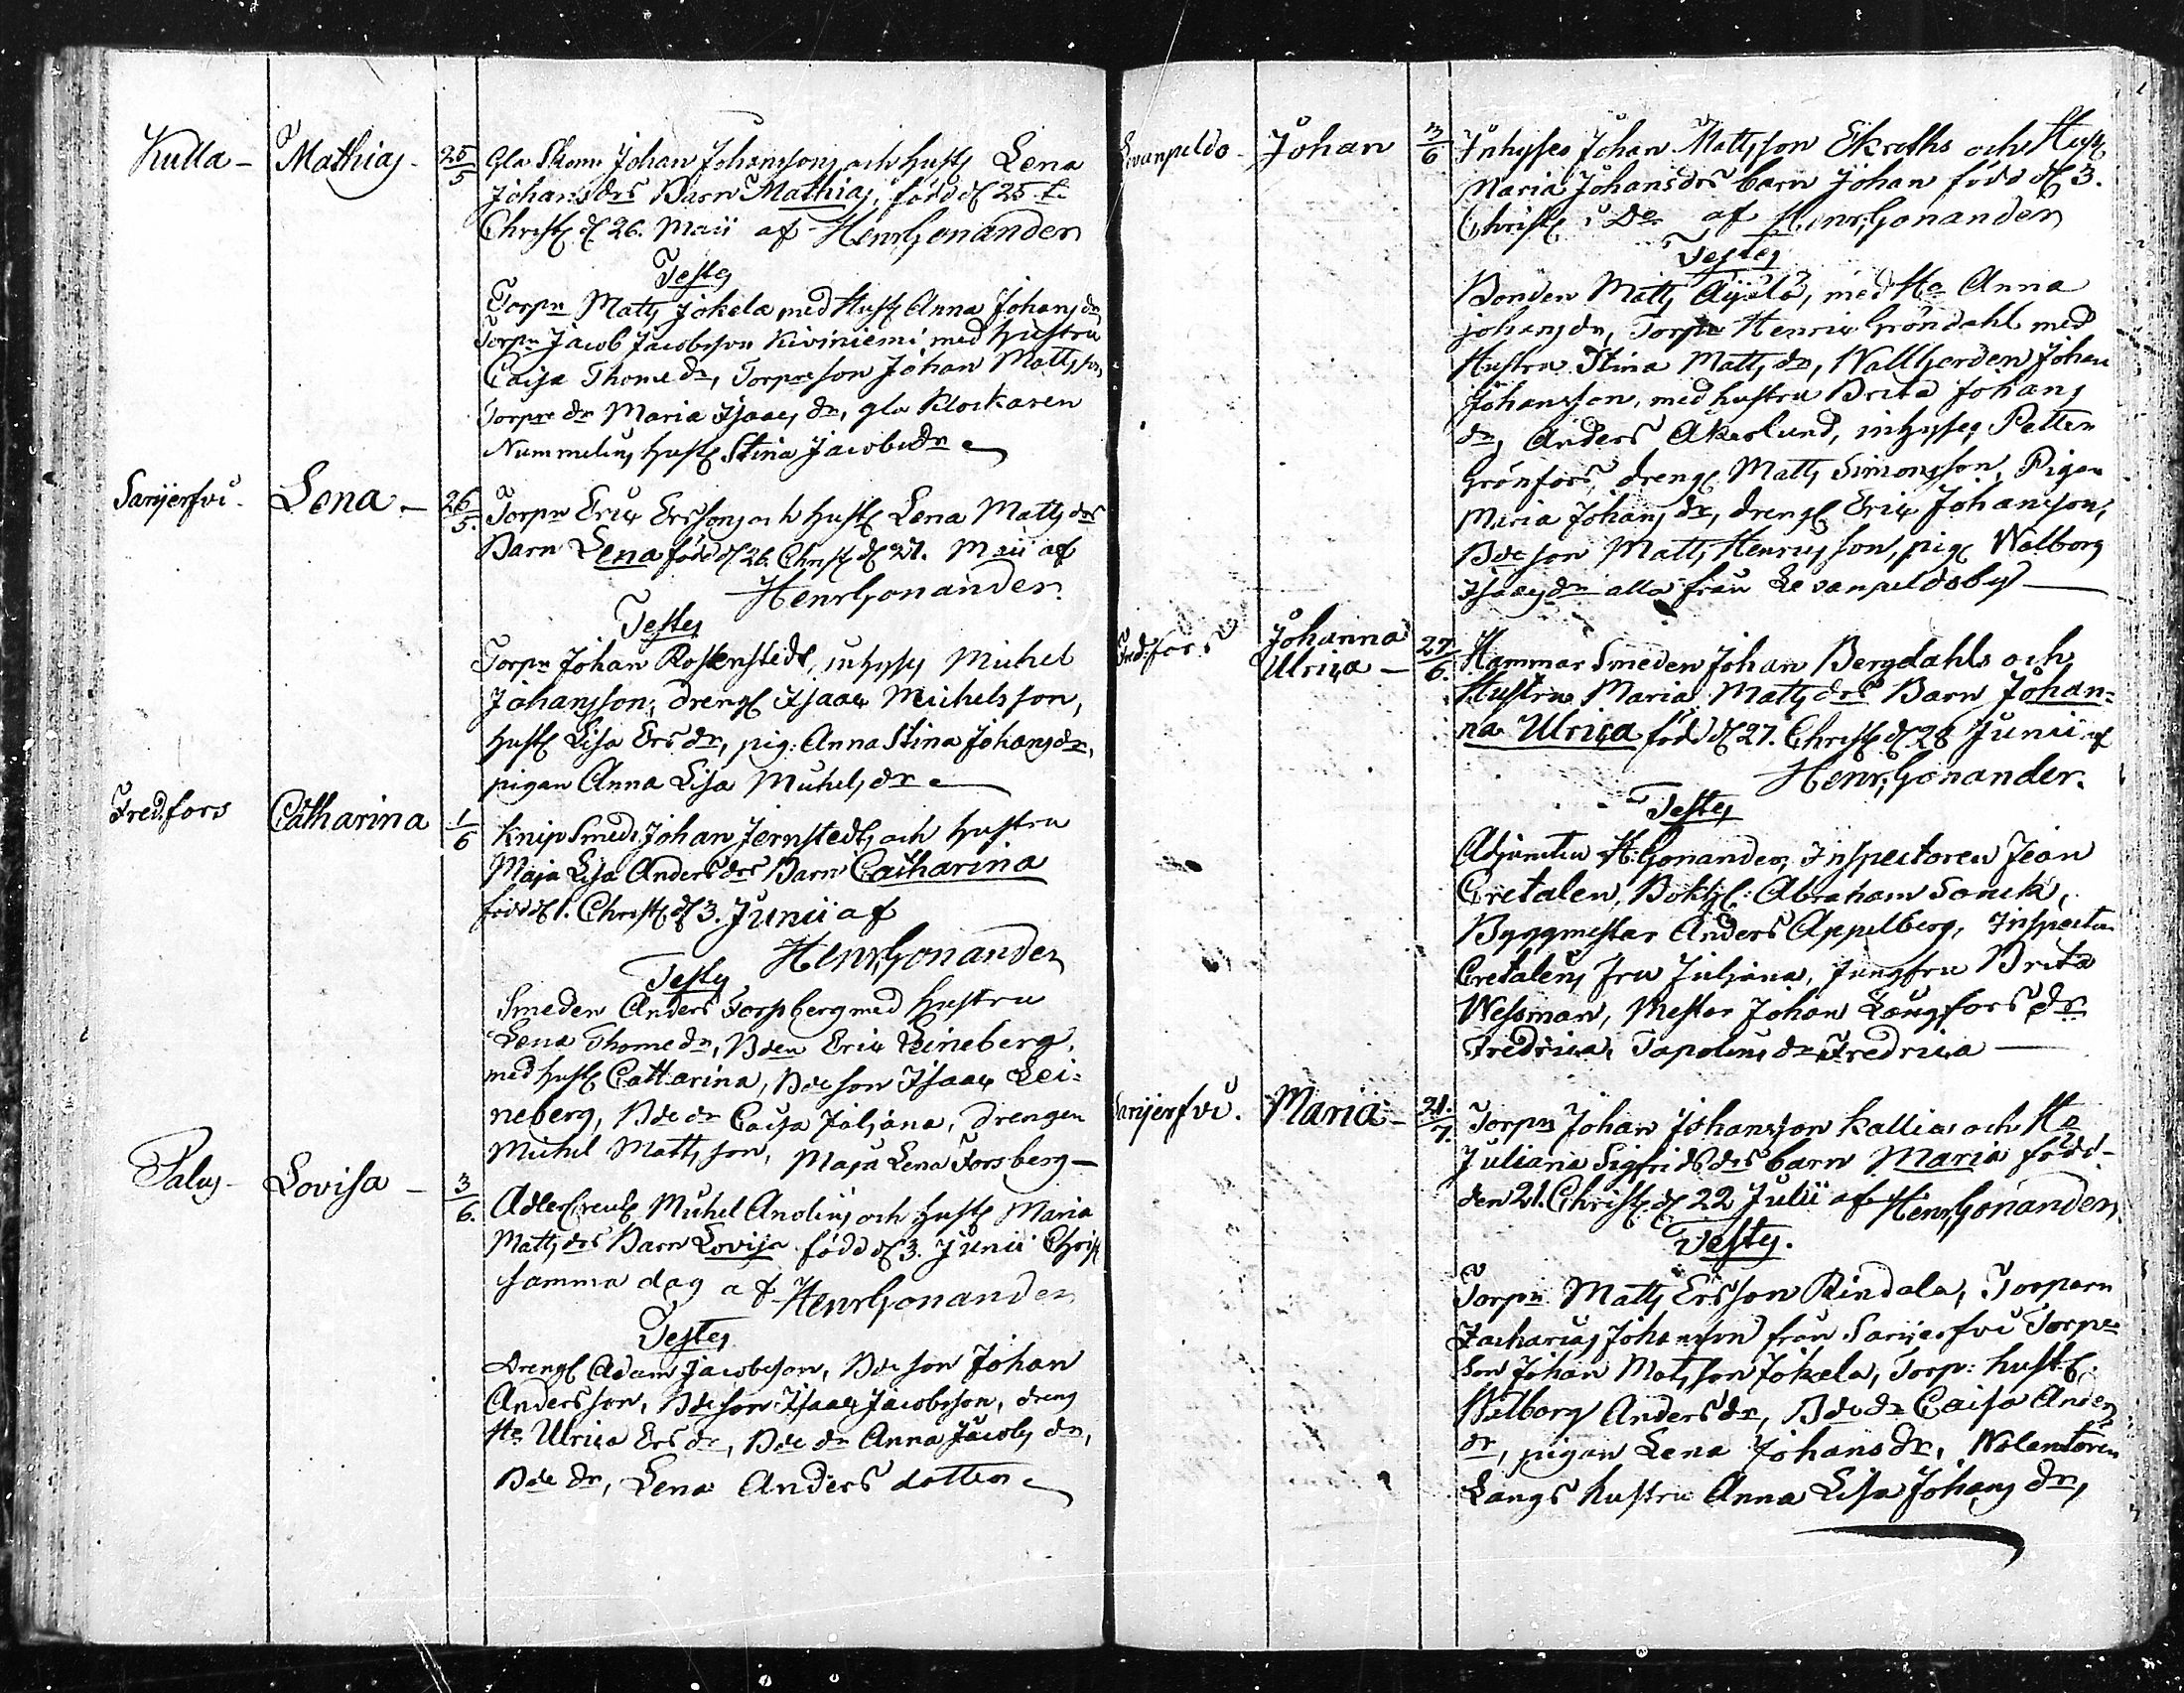 Kulla - Mathias - 25/5 Gla Skomr Johan Johanssons och hust: Lena
Johansdrs Barn Mathias, född d: 25 t.
Christ: d: 26. Maii af Henr: Gonander
Testes
Torpn Matts Jokela med Hust: Anna Johansdr
Torpn Jacob Jacobsson Kiviniemi med Hustru
Caisa Thomedr, Torpareson Johan Mattsson
Torpre dr Maria Isaacs dr, gla Klockaren
Nummelins hust: Stina Jacobsdr
Sarijerfvi. Lena - 26/5. Torpn Eric Ersons och hust: Lena Matts drs
Barn Lena född d: 26. Christ d: 27. Maii af
Henr Gonander.
Testes
Torpn Johan Rostenstedt, inhyses Michel
Johansson, dreng: Isaac Michelsson,
hust: Lisa Ersdr, pig: Anna Stina Johansdr,
pigan Anna Lisa Michels dr
Fred.fors Catharina 1/6 Knip Smeds Johan Jernstedts och hustru
Maja Lisa Andersdrs Barn Catharina
född d: 1. Christ: d: 3. Junii af
Henr: Gonander
Testes
Smeden Anders Forsberg med hustru
Lena Thomedr, Bden Eric Leineberg,
med hust: Catharina, Bdeson Isaac Lei=
neberg, Bde dr Caisa Juljana, drengen
Michel Mattsson, Maja Lena Forsberg -
Palus - Lovisa - 3/6. Adlercreutz Michel Anolins och hust: Maria
Matts drs Barn Lovisa född d: 3. Junii Christ
samma dag af Henr Gonander
Testes
Dreng: Adam Jacobsson, Bdeson Johan
Andersson, Bdeson Isaac Jacobsson, dreng
Ha Ulrica Ersdr, Bde dr Anna Jacobs dr,
Bde dr, Lena Anders dotter
Levanpeldo - Johan 3/6 Inhyses Johan Mattsson Ekroths och Hust
Maria Johansdrs barn Johan född d: 3.
Christ: i Do af Henr: Gonander
Testes
Bonden Matts Äijälä, med Ha Anna
Johansdr, Torpn Henric Gröndahl med
Hustru Stina Matts dr, Wallhjorden Johan
Johansson, med hustru Brita Johans
dr, Anders Åkerlund, inhyses Petter
Grönfors, dreng: Matts Simonsson, Pigan
Maria Johans dr, dreng: Eric Johansson,
Bdeson Matts Henricsson, pig: Walborg
Isaacsdr alla från Levanpeldoby
Fred.fors Johanna
Ulrica - 27/6. Hammar Smeden Johan Bergdahls och
Hustru Maria Mattsdrs Barn Johan=
na Ulrica född d: 27. Christ: d: 28 Junii af
Henr: Gonander.
Testes
Adjuncten H: Gonander, Inspectoren Jean
Cretalen, Bokh: Abraham Sonck,
Byggmestar Anders Appelberg, Inspector
Cretalens Fru Juliana, Jungfru Brita
Wessman, Mestar Johan Långfors dr
Fredrica, Tapolins dr Fredrica
Sarijerfvi. Maria - 21./7. Torpn Johan Johansson Kallias och Ha
Juliana Sigfrids drs barn Maria född
den 21. Christ: d: 22 Julii af Henr Gonander.
Testes.
Torpn Matts Ersson Rindala, Torparn
Zacharias Johansson från Sarijerfvi Torpe
son Johan Matsson Jokela, Torp: hust:
Walborg Andersdr, Bde dr Caisa Anders
dr, pigan Lena Johansdr, Wolentoren
Langs hustru Anna Lisa Johans dr,